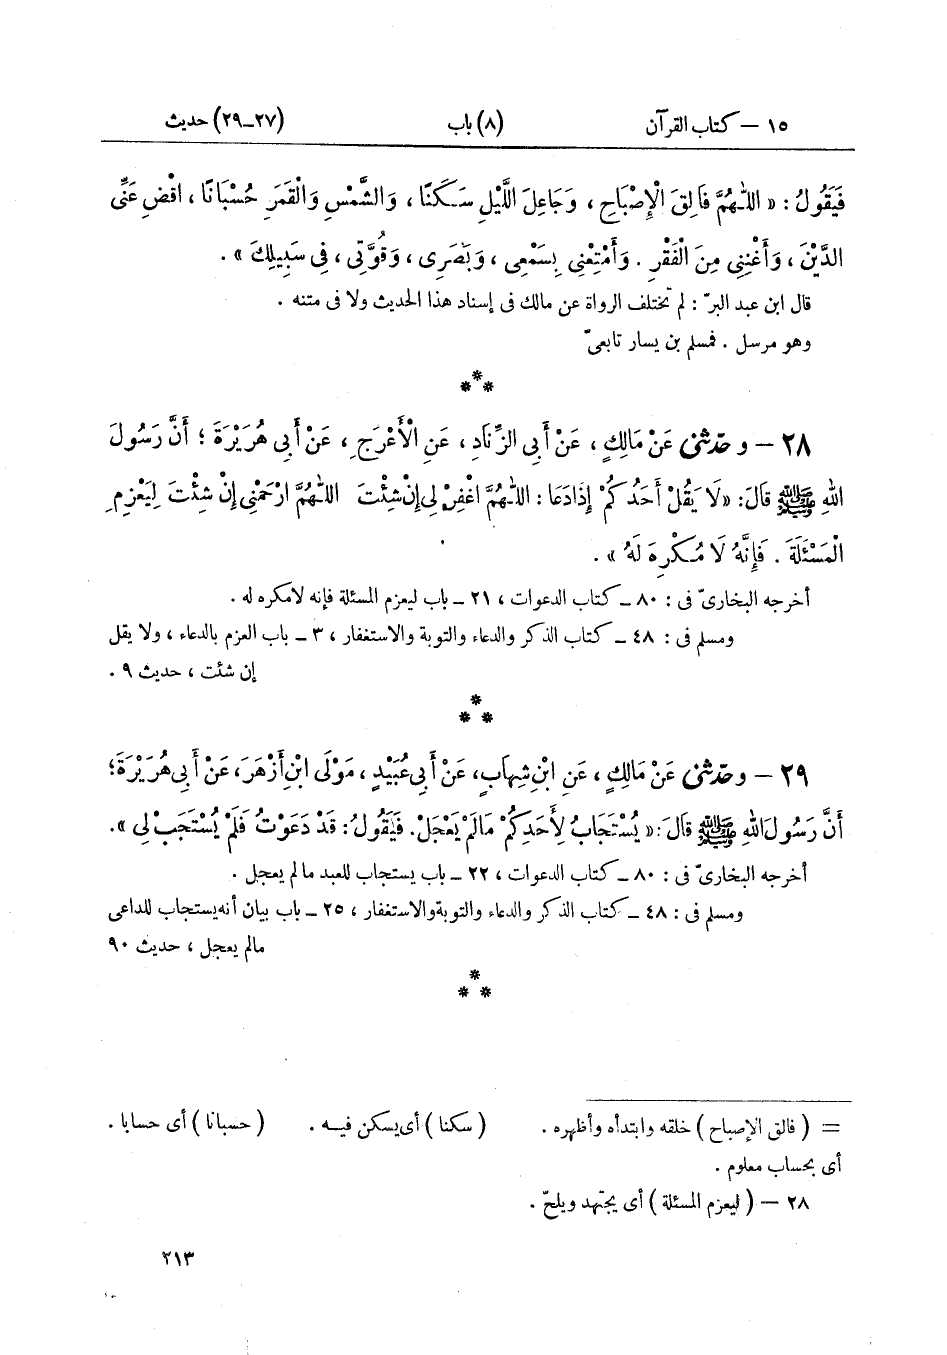 ١٥ – كتاب القرآن (٨) باب (٢٧–٢٩) حديث
فَيَقُولُ : « اللَّهُمَّ فَالِقَ الْإِصْبَاحِ ، وَجَاعِلَ اللَّيْلِ سَكَنًا ، وَالشَّمْسِ وَالْقَمَرِ حُسْبَانًا ، اقْضِ عَنِّى
الدَّيْنَ ، وَأَغْنِنِى مِنَ الْفَقْرِ . وَأَمْتِعْنِى بِسَمْعِى ، وَبَصَرِى ، وَقُوَّتِى ، فِى سَبِيلِكَ » .
قال ابن عبد البرّ : لم تختلف الرواة عن مالك فى إسناد هذا الحديث ولا فى متنه .
وهو مرسل . فمسلم بن يسار تابعىّ
***
٢٨ – وحدّثنى عَنْ مَالِكٍ ، عَنْ أَبِى الزِّنَادِ ، عَنِ الْأَعْرَجِ ، عَنْ أَبِى هُرَيْرَةَ ؛ أَنَّ رَسُولَ
اللهِ ﷺ قَالَ : « لَا يَقُلْ أَحَدُكُمْ إِذَا دَعَا : اللَّهُمَّ اغْفِرْ لِى إِنْ شِئْتَ اللَّهُمَّ ارْحَمْنِى إِنْ شِئْتَ لِيَعْزِمِ
الْمَسْئَلَةَ . فَإِنَّهُ لَا مُكْرِهَ لَهُ » .
أخرجه البخارىّ فى : ٨٠ – كتاب الدعوات ، ٢١ – باب ليعزم المسئلة فإنه لا مكره له .
ومسلم فى : ٤٨ – كتاب الذكر والدعاء والتوبة والاستغفار ، ٣ – باب العزم بالدعاء ، ولا يقل
إن شئت ، حديث ٩ .
***
٢٩ – وحدّثنى عَنْ مَالِكٍ ، عَنِ ابْنِ شِهَابٍ ، عَنْ أَبِى عُبَيْدٍ ، مَوْلَى ابْنِ أَزْهَرَ ، عَنْ أَبِى هُرَيْرَةَ ؛
أَنَّ رَسُولَ اللهِ ﷺ قَالَ : « يُسْتَجَابُ لِأَحَدِكُمْ مَا لَمْ يَعْجَلْ . فَيَقُولُ : قَدْ دَعَوْتُ فَلَمْ يُسْتَجَبْ لِى » .
أخرجه البخارىّ فى : ٨٠ – كتاب الدعوات ، ٢٢ – باب يستجاب للعبد ما لم يعجل .
ومسلم فى : ٤٨ – كتاب الذكر والدعاء والتوبة والاستغفار ، ٢٥ – باب بيان أنه يستجاب للداعى
مالم يعجل ، حديث ٩٠
***
= ( فالق الإصباح ) خلقه وابتدأه وأظهره . ( سكنا ) أى يسكن فيه . ( حسبانا ) أى حسابا .
أى بحساب معلوم .
٢٨ – ( ليعزم المسئلة ) أى يجتهد ويلحّ .
٢١٣